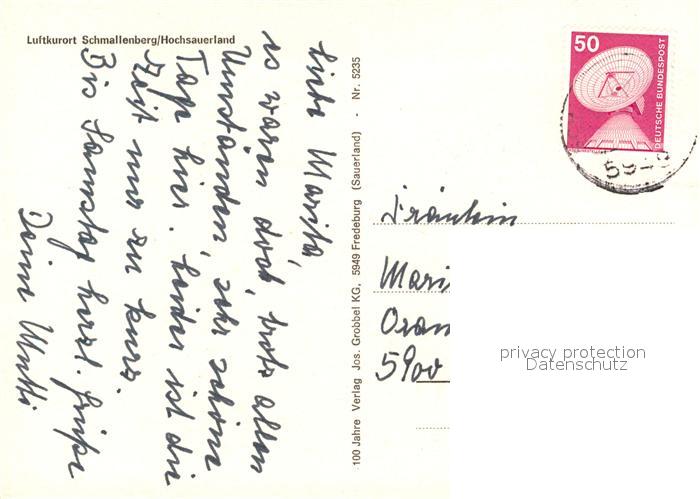 Luftkurort Schmallenberg/Hochsauerland
Liebe Marita,
es waren doch, trotz allen
Umständen, sehr schöne
Tage hier. Leider ist die
Zeit nur zu kurz.
Bis Samstag herzl. Grüße
Deine Mutti
100 Jahre Verlag Jos. Grobbel KG, 5949 Fredeburg (Sauerland) - Nr. 5235
50
DEUTSCHE BUNDESPOST
Fräulein
Mari
Oran
5900
privacy protection
Datenschutz